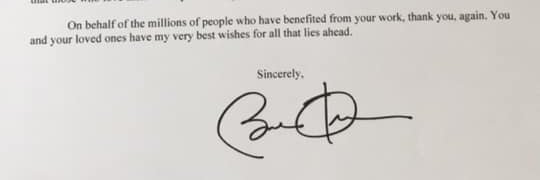 On behalf of the millions of people who have benefited from your work, thank you, again. You
and your loved ones have my very best wishes for all that lies ahead.
Sincerely,